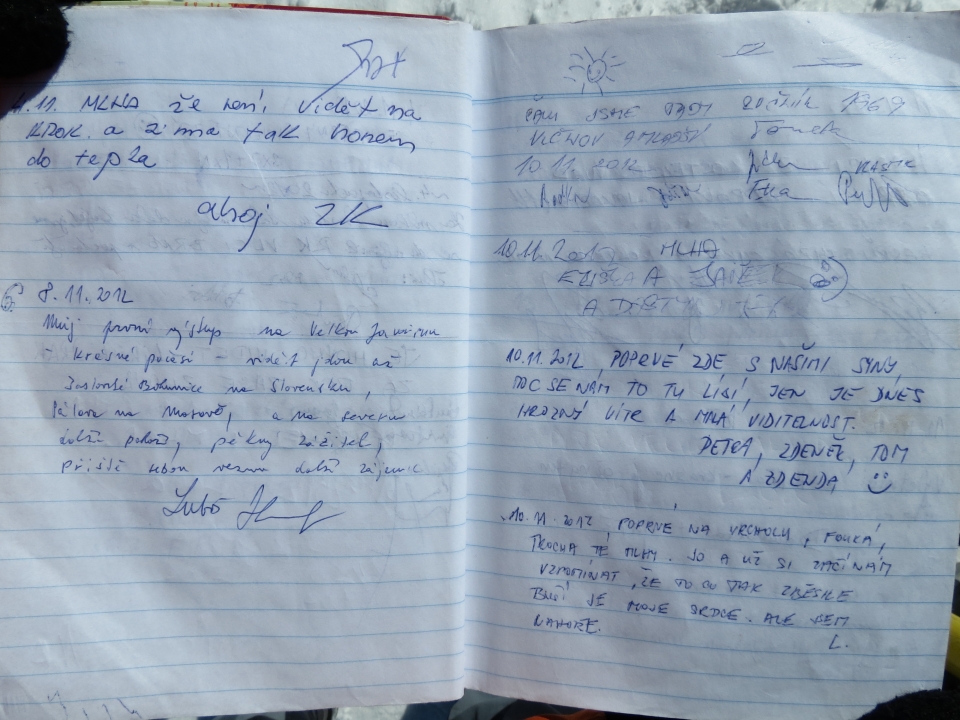 4.11. MLHA že není vidět na
KROK a zima tak honem
do tepla
ahoj ZK
8.11.2012
Můj první výstup na Velkou Javořinu
- krásné počasí - vidět jdou až
Jaslovské Bohunice na Slovensku,
Pálava na Moravě, a na severu
další pohoří, pěkný zážitek,
příště sebou vezmu další zájemce
Luboš
JSME TADY ROČNÍK 1969
VLČNOV A MLADŠÍ Tomek
10.11.2012
Petr
10.11.2012 MLHA
ELIŠKA A
A
10.11.2012, POPRVÉ ZDE S NAŠIMI SYNY,
MOC SE NÁM TO TU LÍBÍ, JEN JE DNES
HROZNÝ VÍTR A MALÁ VIDITELNOST.
PETRA, ZDENĚK, TOM
A ZDENDA
10.11.2012 POPRVÉ NA VRCHOLU, FOUKÁ,
TROCHA TÉ MLHY. JO A UŽ SI ZAČÍNÁM
VZPOMÍNAT, ŽE TO CO TAK ZBĚSILE
BUŠÍ JE MOJE SRDCE. ALE JSEM
NAHOŘE.
L.